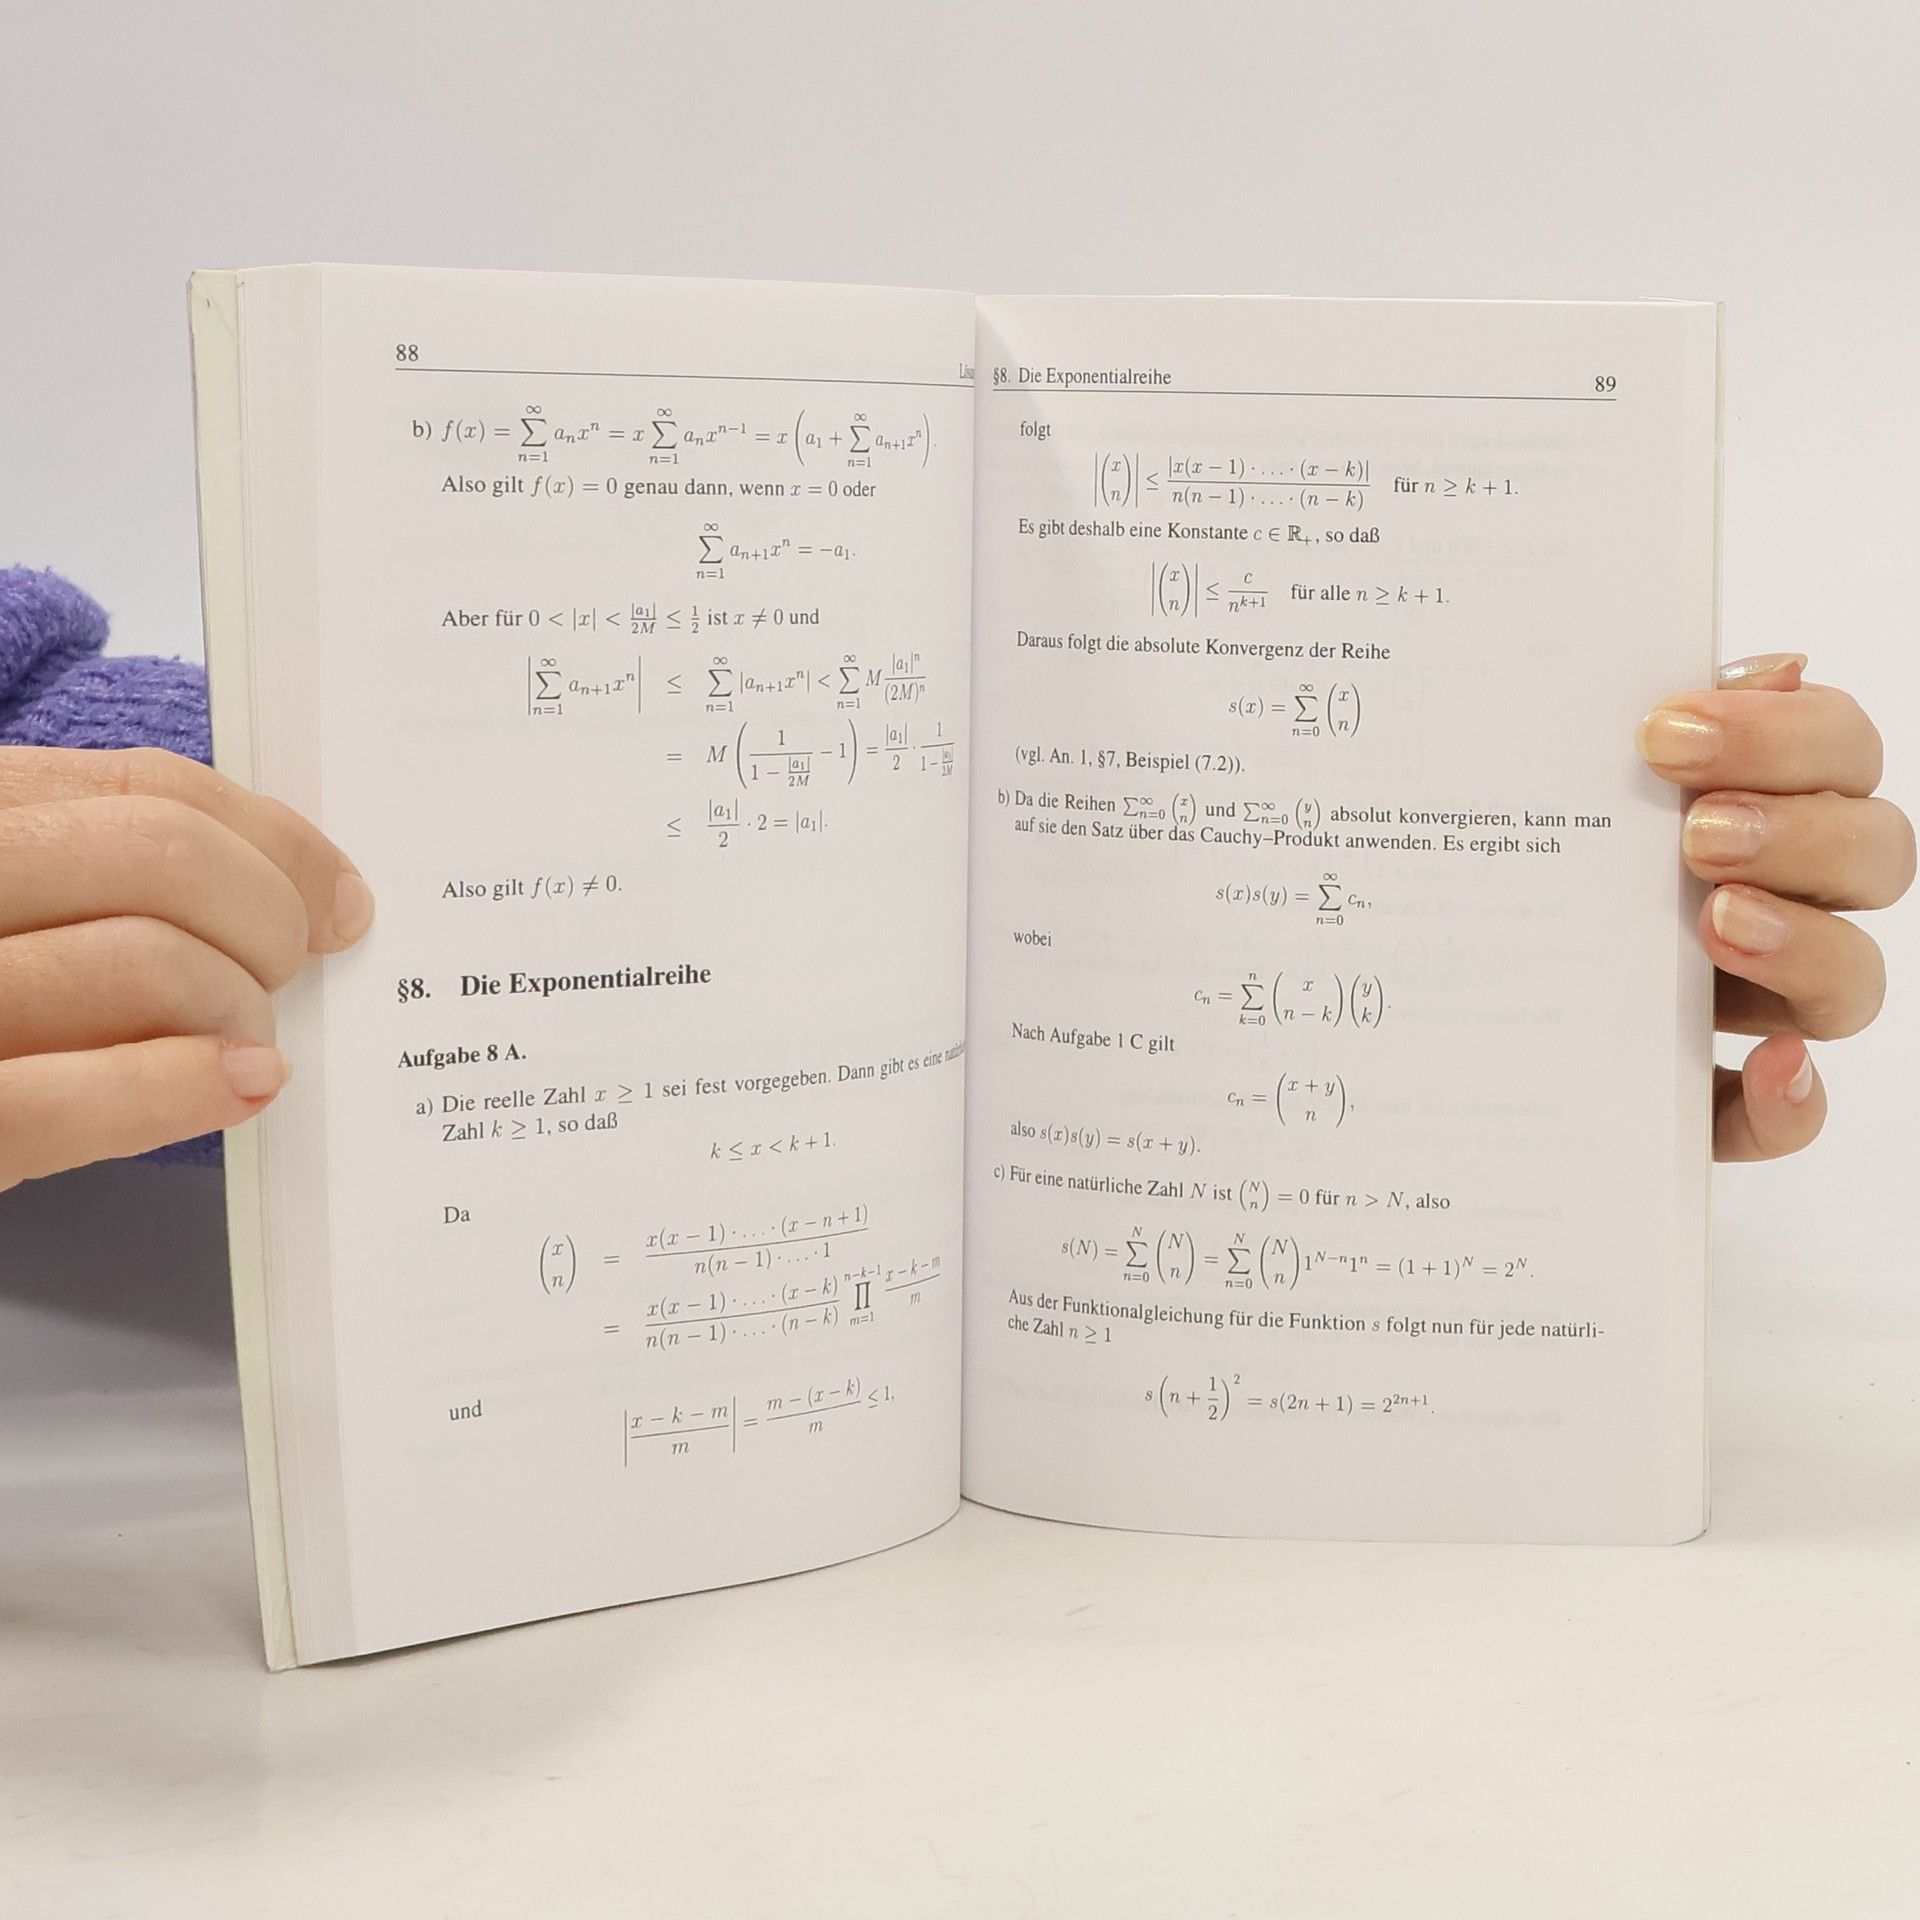 88
b) f(x) = ∑_{n=1}^{∞} a_n x^n = x ∑_{n=1}^{∞} a_n x^{n−1} = x (a_1 + ∑_{n=1}^{∞} a_{n+1} x^n).
Also gilt f(x) = 0 genau dann, wenn x = 0 oder
∑_{n=1}^{∞} a_{n+1} x^n = −a_1.
Aber für 0 < |x| < |a_1|/2M ≤ 1/2 ist x ≠ 0 und
|∑_{n=1}^{∞} a_{n+1} x^n| ≤ ∑_{n=1}^{∞} |a_{n+1} x^n| < ∑_{n=1}^{∞} M |a_1|^n/(2M)^n
= M (1/(1 − |a_1|/2M) − 1) = |a_1|/2 · 1/(1 − |a_1|/2M)
≤ |a_1|/2 · 2 = |a_1|.
Also gilt f(x) ≠ 0.
§8. Die Exponentialreihe
Aufgabe 8 A.
a) Die reelle Zahl x ≥ 1 sei fest vorgegeben. Dann gibt es eine
Zahl k ≥ 1, so daß
k ≤ x < k + 1.
Da
(x über n) = x(x − 1) · … · (x − n + 1) / n(n − 1) · … · 1
= x(x − 1) · … · (x − k) / n(n − 1) · … · (n − k) ∏_{m=1}^{n−k−1} (x − k − m)/m
und
|(x − k − m)/m| = (m − (x − k))/m ≤ 1,
§8. Die Exponentialreihe 89
folgt
|(x über n)| ≤ |x(x − 1) · … · (x − k)| / n(n − 1) · … · (n − k) für n ≥ k + 1.
Es gibt deshalb eine Konstante c ∈ ℝ₊, so daß
|(x über n)| ≤ c/n^{k+1} für alle n ≥ k + 1.
Daraus folgt die absolute Konvergenz der Reihe
s(x) = ∑_{n=0}^{∞} (x über n)
(vgl. An. 1, §7, Beispiel (7.2)).
b) Da die Reihen ∑_{n=0}^{∞} (x über n) und ∑_{n=0}^{∞} (y über n) absolut konvergieren, kann man
auf sie den Satz über das Cauchy–Produkt anwenden. Es ergibt sich
s(x)s(y) = ∑_{n=0}^{∞} c_n,
wobei
c_n = ∑_{k=0}^{n} (x über n − k)(y über k).
Nach Aufgabe 1 C gilt
c_n = (x + y über n),
also s(x)s(y) = s(x + y).
c) Für eine natürliche Zahl N ist (N über n) = 0 für n > N, also
s(N) = ∑_{n=0}^{N} (N über n) = ∑_{n=0}^{N} (N über n) 1^{N−n} 1^n = (1 + 1)^N = 2^N.
Aus der Funktionalgleichung für die Funktion s folgt nun für jede natürli-
che Zahl n ≥ 1
s(n + 1/2)^2 = s(2n + 1) = 2^{2n+1}.